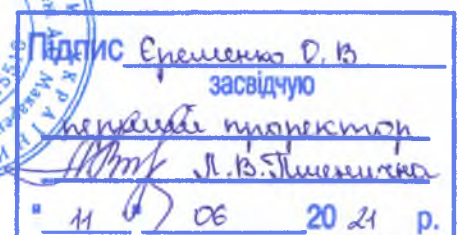 Підпис Єременко О. В
засвідчую
перший проректор
Л.В. Пшенична
" 11 " 06 20 21 р.